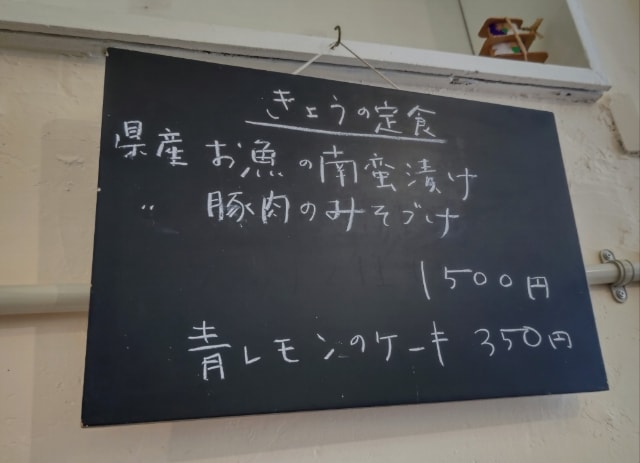 きょうの定食
県産 お魚の南蛮漬け
〃 豚肉のみそづけ
1500円
青レモンのケーキ 350円